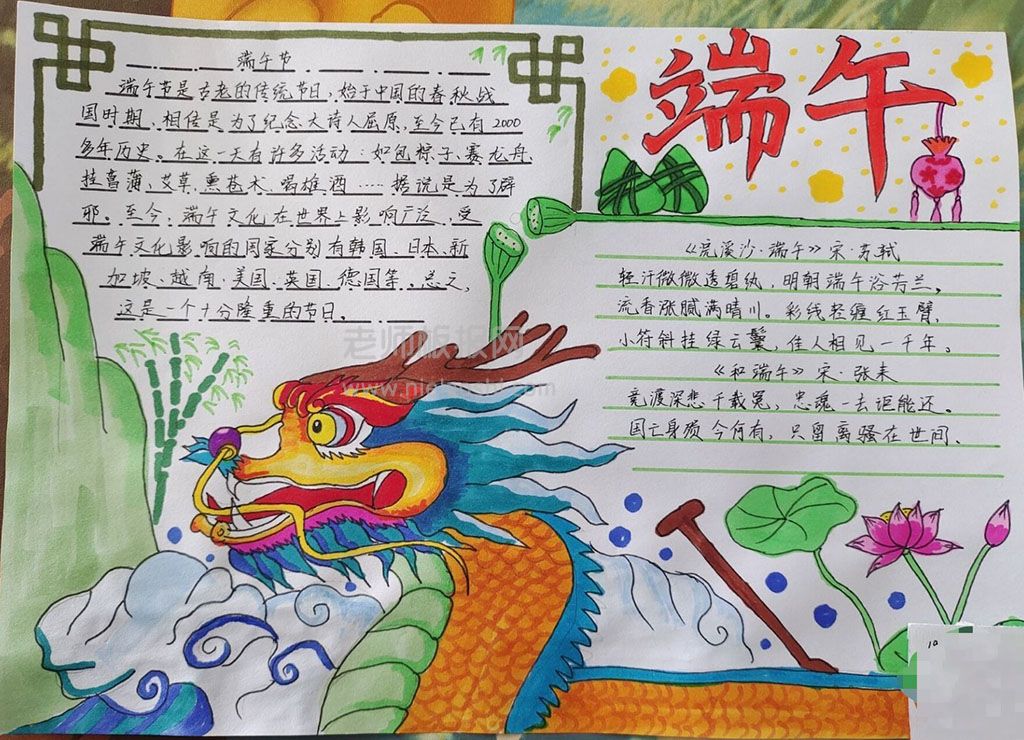 端午节
端午节是古老的传统节日,始于中国的春秋战
国时期,相传是为了纪念大诗人屈原,至今已有2000
多年历史。在这一天有许多活动:如包粽子、赛龙舟、
挂菖蒲、艾草、熏苍术、喝雄酒……据说是为了辟
邪。至今,端午文化在世界上影响广泛,受
端午文化影响的国家分别有韩国、日本、新
加坡、越南、美国、英国、德国等。总之,
这是一个十分隆重的节日。
端午
《浣溪沙·端午》宋·苏轼
轻汗微微透碧纨,明朝端午浴芳兰。
流香涨腻满晴川。彩线轻缠红玉臂,
小符斜挂绿云鬟,佳人相见一千年。
《和端午》宋·张耒
竞渡深悲千载冤,忠魂一去讵能还。
国亡身殒今何有,只留离骚在世间。
老师板报网
10